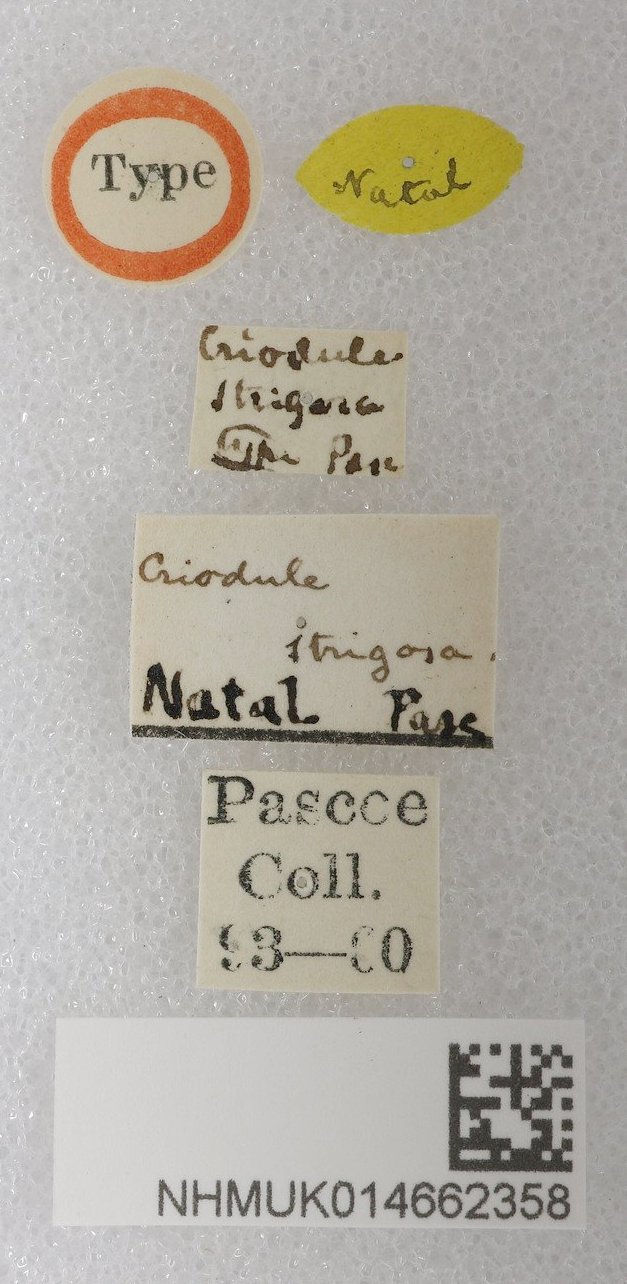 Type
Natal
Criodule
strigosa
Type Pasc
Criodule
strigosa.
Natal Pasc
Pascoe
Coll.
93—60
NHMUK014662358